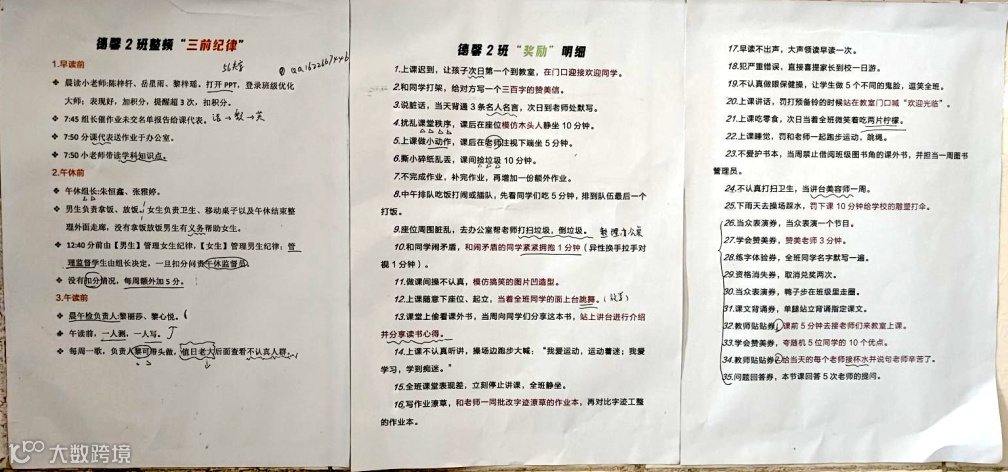 德馨2班整顿“三前纪律”
1.早读前
晨读小老师:陈梓轩、岳星雨、黎梓瑶,打开PPT,登录班级优化
大师:表现好,加积分,提醒超3次,扣积分。
7:45 组长催作业未交名单报告给课代表。语→数→英
7:50 分课代表送作业于办公室。
7:50 小老师带读学科知识点。
2.午休前
午休组长:朱恒鑫、张雅婷。
男生负责拿饭、放饭,女生负责卫生、移动桌子以及午休结束整
理外面走廊,没有拿饭放饭男生有义务帮助女生。
12:40 分前由【男生】管理女生纪律,【女生】管理男生纪律;管
理监督学生由组长决定,一旦扣分问责午休监督员。
没有扣分情况,每周额外加5分。
3.午读前
晨午检负责人:黎丽莎、黎心悦。
午读前,一人测,一人写。
每周一歌,负责人黎可带头做,值日老大后面查看不认真人群。
德馨2班“奖励”明细
1.上课迟到,让孩子次日第一个到教室,在门口迎接欢迎同学。
2.和同学打架,给对方写一个三百字的赞美信。
3.说脏话,当天背通3条名人名言,次日到老师处默写。
4.扰乱课堂秩序,课后在座位模仿木头人静坐10分钟。
5.上课做小动作,课后在老师注视下端坐5分钟。
6.撕小碎纸乱丢,课间捡垃圾10分钟。
7.不完成作业,补完作业,再增加一份额外作业。
8.中午排队吃饭打闹或插队,先看同学们吃5分钟,排到队伍最后一个
打饭。
9.座位周围脏乱,去办公室帮老师打扫垃圾,倒垃圾。
10.和同学闹矛盾,和闹矛盾的同学紧紧拥抱1分钟(异性换手拉手对
视1分钟)。
11.做课间操不认真,模仿搞笑的图片凹造型。
12.上课随意下座位、起立,当着全班同学的面上台跳舞。
13.课堂上偷看课外书,当周向同学们分享这本书,站上讲台进行介绍
并分享读书心得。
14.上课不认真听讲,操场边跑步大喊:“我爱运动,运动着迷;我爱
学习,学到痴迷。”
15.全班课堂表现差,立刻停止讲课,全班静坐。
16.写作业潦草,和老师一同批改字迹潦草的作业本,再对比字迹工整
的作业本。
17.早读不出声,大声领读早读一次。
18.犯严重错误,直接喜提家长到校一日游。
19.不认真做眼保健操,让学生做5个不同的鬼脸,逗笑全班。
20.上课讲话,罚打预备铃的时候站在教室门口喊“欢迎光临”。
21.上课吃零食,次日当着全班微笑着吃两片柠檬。
22.上课睡觉,罚和老师一起跑步运动,跳绳。
23.不爱护书本,当周禁止借阅班级图书角的课外书,并担当一周图书
管理员。
24.不认真打扫卫生,当讲台美容师一周。
25.下雨天去操场踩水,罚下课10分钟给学校的雕塑打伞。
26.当众表演券,当众表演一个节目。
27.学会赞美券,赞美老师3分钟。
28.练字体验券,全班同学名字默写一遍。
29.资格消失券,取消兑奖两次。
30.当众表演券,鸭子步在班级里走圈。
31.课文背诵券,单腿站立背诵指定课文。
32.教师贴贴券1课前5分钟去接老师们来教室上课。
33.学会赞美券,夸随机5位同学的10个优点。
34.教师贴贴券2给当天的每个老师接杯水并说句老师辛苦了。
35.问题回答券,本节课回答5次老师的提问。
大数跨境